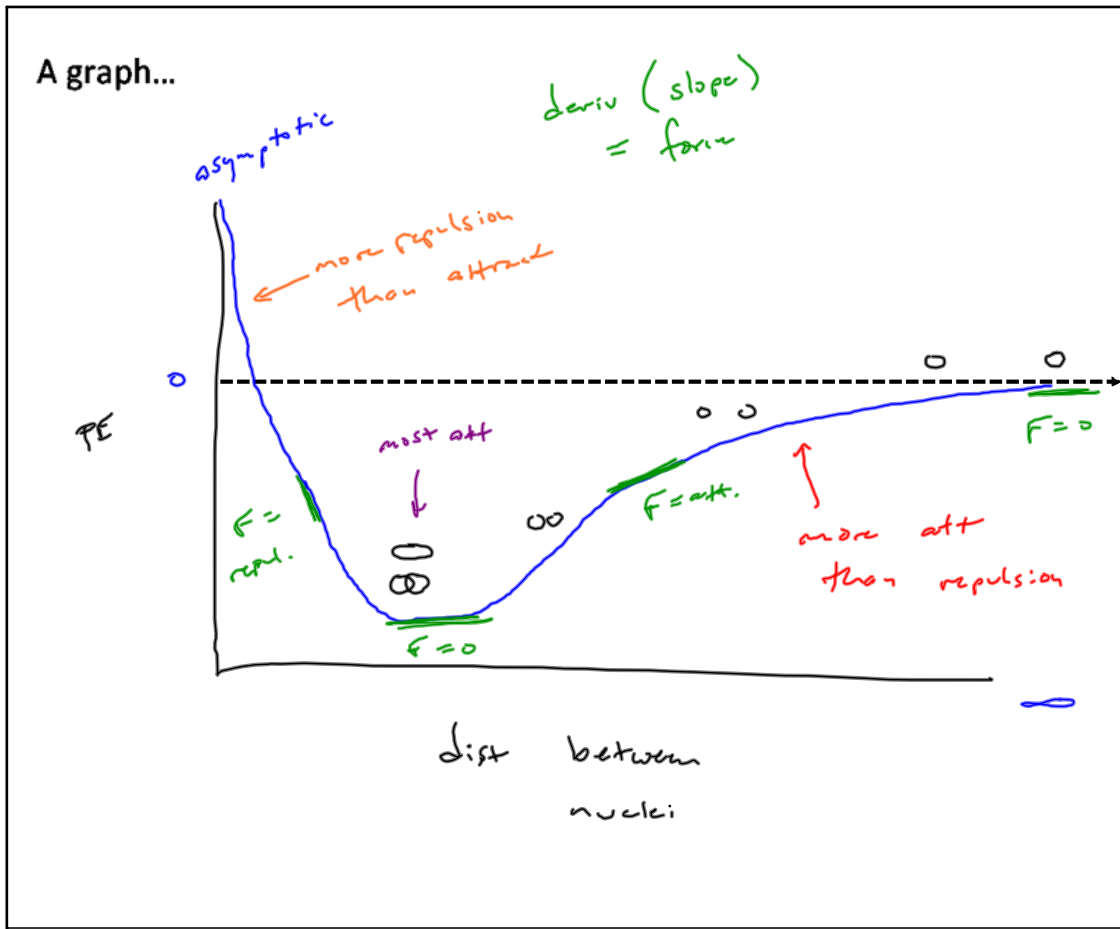 A graph...
deriv (slope)
= force
asymptotic
more repulsion
than attract
0
PE
most att
F =
repul.
F = att.
F = 0
more att
than repulsion
F = 0
∞
dist between
nuclei